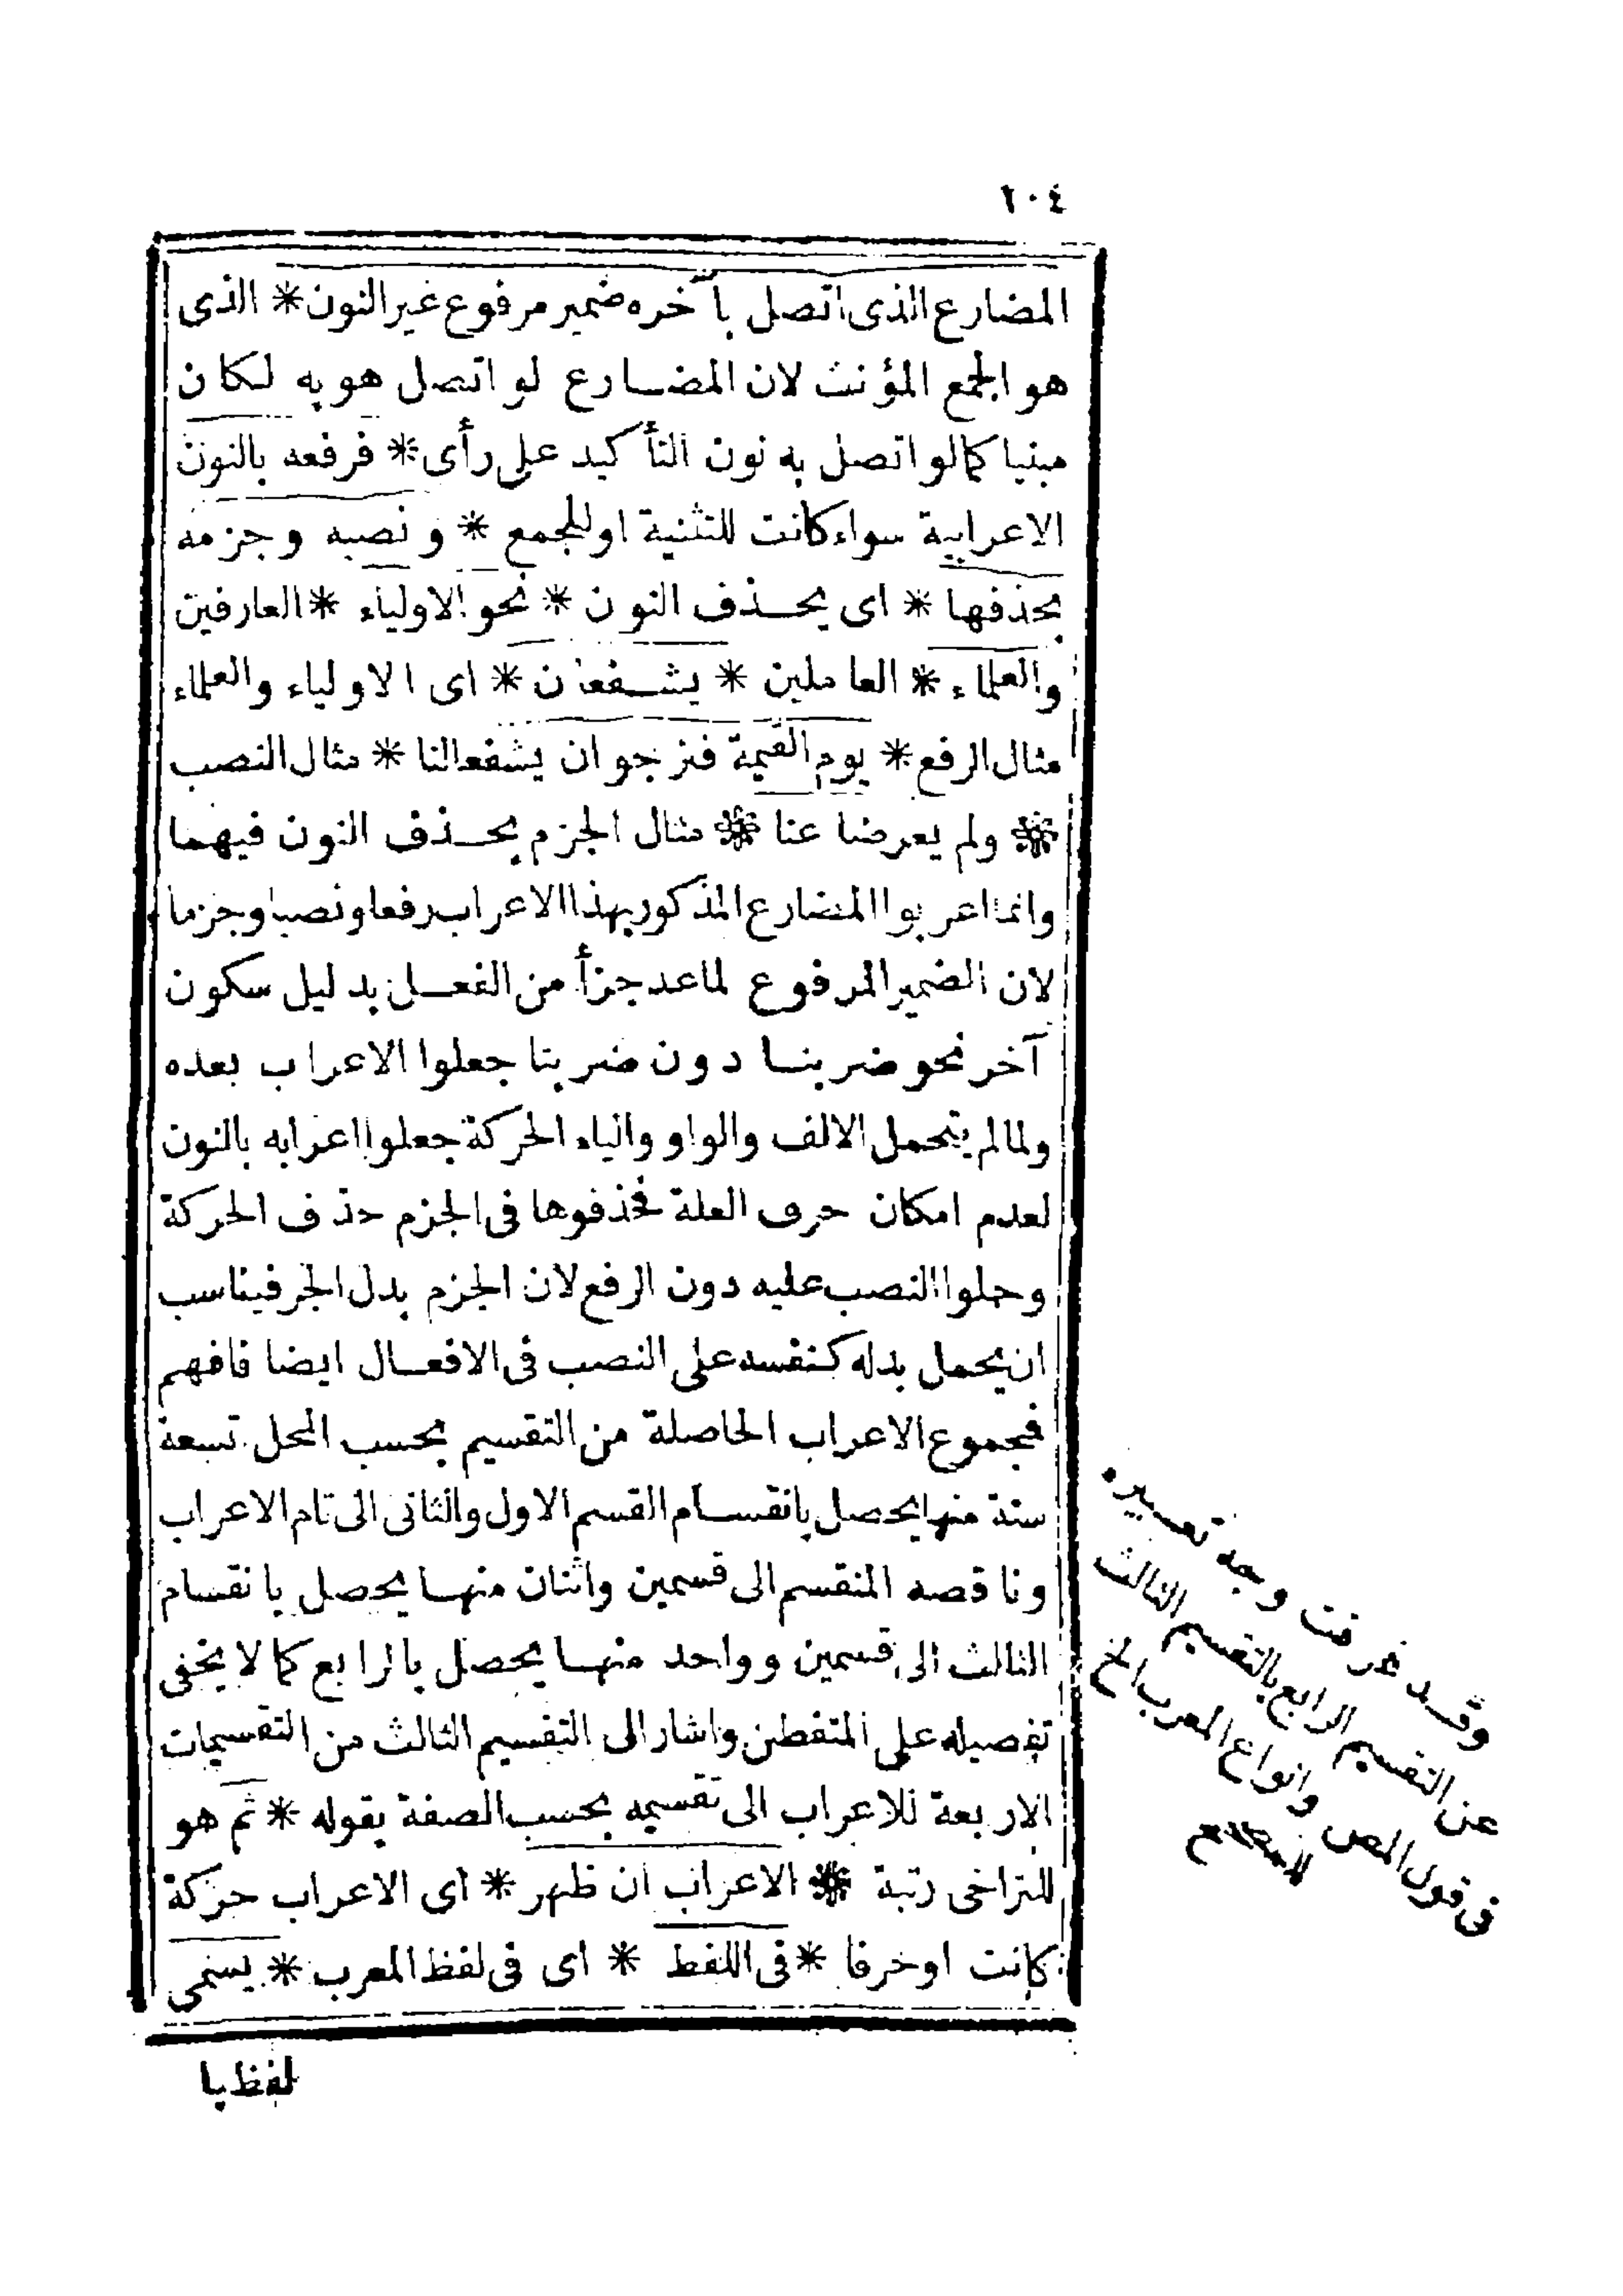 ١٠٤
المضارع الذى اتصل بآخره ضمير مرفوع غير النون * الذى
هو الجمع المؤنث لان المضارع لو اتصل هو به لكان
مبنيا كمالو اتصل به نون التأكيد على رأى * فرفعه بالنون
الاعرابية سواء كانت للتثنية او للجمع * ونصبه وجزمه
بحذفها * اى بحذف النون * نحو الاولياء * العارفين
والعلماء * العاملين * يشفعان * اى الاولياء والعلماء
مثال الرفع * يوم القيمة فنرجو ان يشفعا لنا * مثال النصب
* ولم يعرضا عنا * مثال الجزم بحذف النون فيهما
وانما اعربوا المضارع المذكور بهذا الاعراب رفعا ونصبا وجزما
لان الضمير المرفوع لما عد جزأ من الفعل بدليل سكون
آخر نحو ضربنا دون ضربتا جعلوا الاعراب بعده
ولما لم يتحمل الالف والواو والياء الحركة جعلوا اعرابه بالنون
لعدم امكان حرف العلة فحذفوها فى الجزم حذف الحركة
وحملوا النصب عليه دون الرفع لان الجزم بدل الجر فيناسب
ان يحمل بدله كنفسه على النصب فى الافعال ايضا فافهم
فمجموع الاعراب الحاصلة من التقسيم بحسب المحل تسعة
ستة منها يحصل بانقسام القسم الاول والثانى الى تام الاعراب
وناقصه المنقسم الى قسمين واثنان منها يحصل بانقسام
الثالث الى قسمين وواحد منها يحصل بالرابع كما لا يخفى
تفصيله على المتفطن واشار الى التقسيم الثالث من التقسيمات
الاربعة للاعراب الى تقسيمه بحسب الصفة بقوله * ثم هو
للتراخى رتبة * الاعراب ان ظهر * اى الاعراب حركة
كانت او حرفا * فى اللفظ * اى فى لفظ المعرب * يسمى
لفظيا
وقد عرفت وجه تعبيره
عن التقسيم الرابع بالتقسيم الثالث
فى قول المص وانواع المعرب الخ